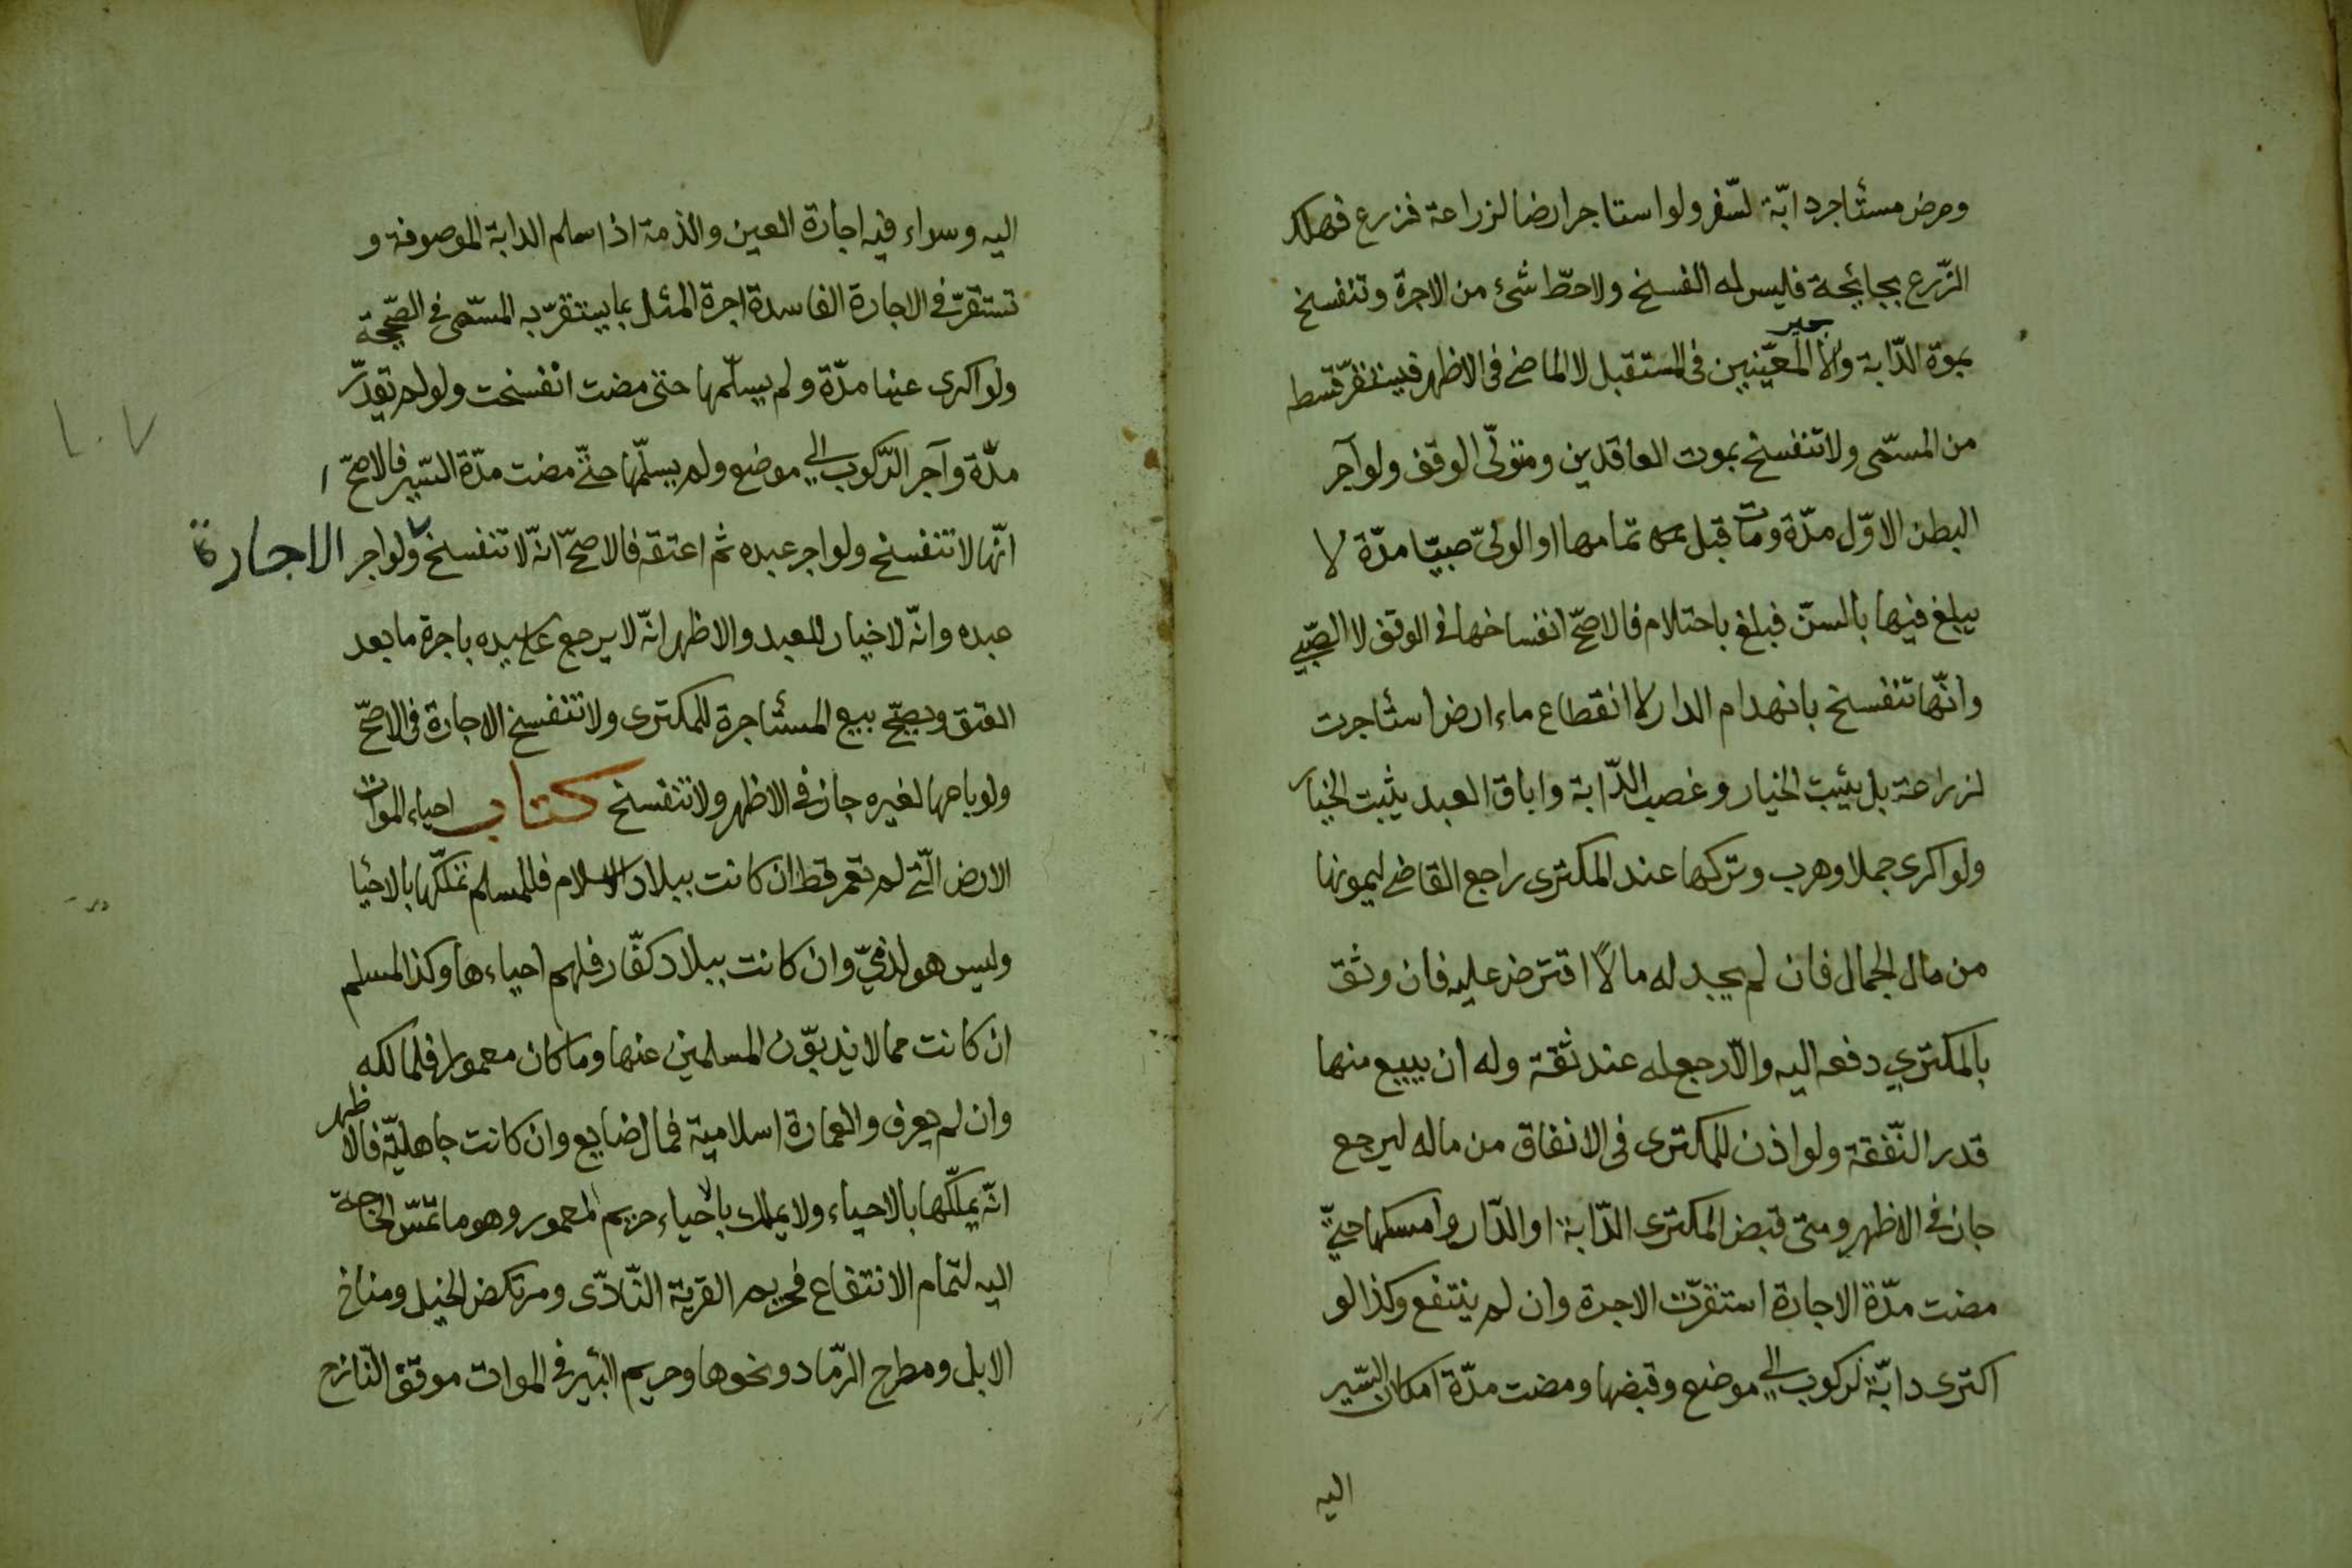 ومرض مستٔاجر دابّة لسّفر ولو استاجر ارضا لزراعة فزرع فهلك
الزّرع بجائحة فليس له الفسخ ولا حطّ شئ من الاجرة وتنفسخ
بموة الدّابة والاجير المعيّنيين فى المستقبل لا الماضى فى الاظهر فيستقرّ قسط
من المسمّى ولا تنفسخ بموت العاقدين ومتولّى الوقف ولو آجر
البطن الاوّل مدّة ومات قبل تمامها او الولىّ صبيّا مدّة لا
يبلغ فيها بالسنّ فبلغ باحتلام فالاصحّ انفساخها فى الوقف لا الصّبي
وانّها تنفسخ بانهدام الدار لا انقطاع ماء ارض استٔاجرت
لزراعة بل يثبت الخيار وغصب الدّابة واباق العبد يثبت الخيار
ولو اكرى جملا وهرب وتركها عند المكترى راجع القاضى ليمونها
من مال الجمال فان لم يجد له مالًا اقترض عليه فان وثق
بالمكتري دفعه اليه والّا رجع له عند ثقة وله ان يبيع منها
قدر النّفقة ولو اذن للمكترى فى الانفاق من ماله ليرجع
جاز فى الاظهر ومتى قبض المكترى الدّابة او الدّار وامسكها حتىّ
مضت مدّة الاجارة استقرّت الاجرة وان لم ينتفع وكذا لو
اكترى دابّة لركوب الى موضع وقبضها ومضت مدّة امكان السّير
اليه
اليه وسواء فيه اجارة العين والذمة اذا سلم الدابة الموصوفة و
تستقرّ فى الاجارة الفاسدة اجرة المثل بما يستقرّ به المسمّى فى الصّحيحة
ولو اكرى عينا مدّة ولم يسلّمها حتى مضت انفسخت ولو لم تقدّر
مدّة وآجر الرّكوب الى موضع ولم يسلّمها حتىّ مضت مدّة السّير فالاصحّ ا
انّها لا تنفسخ ولو اجر عبده ثم اعتقه فالاصحّ انّه لا تنفسخ ولو اجر الاجارة
عبده وانّه لا خيار للعبد والاظهر انّه لا يرجع على سيده باجرة ما بعد
العتق ويصحّ بيع المستٔاجرة للمكترى ولا تنفسخ الاجارة فى الاصحّ
ولو باعها لغيره جاز فى الاظهر ولا تنفسخ كتاب احياء الموات
الارض الّتى لم تعمر قط ان كانت ببلاد الاسلام فللمسلم تملّكها بالاحيا
وليس هو لذمّي وان كانت ببلاد كفّار فلهم احياءها وكذا المسلم
ان كانت مما لا يذبوّن المسلمين عنها وما كان معمورا فلمالكه
وان لم يعرف والعمارة اسلامية فمال ضايع وان كانت جاهليّة فالاظهر
انّه يملّكها بالاحياء ولا يملك بالاحياء حريم المعمور وهو ما تمسّ الحاجة
اليه لتمام الانتفاع فحريم القرية النّادّى ومرتكض الخيل ومناخ
الابل ومطرح الرّماد ونحوها وحريم البٔير فى الموات موقف النّازح
١٠٧